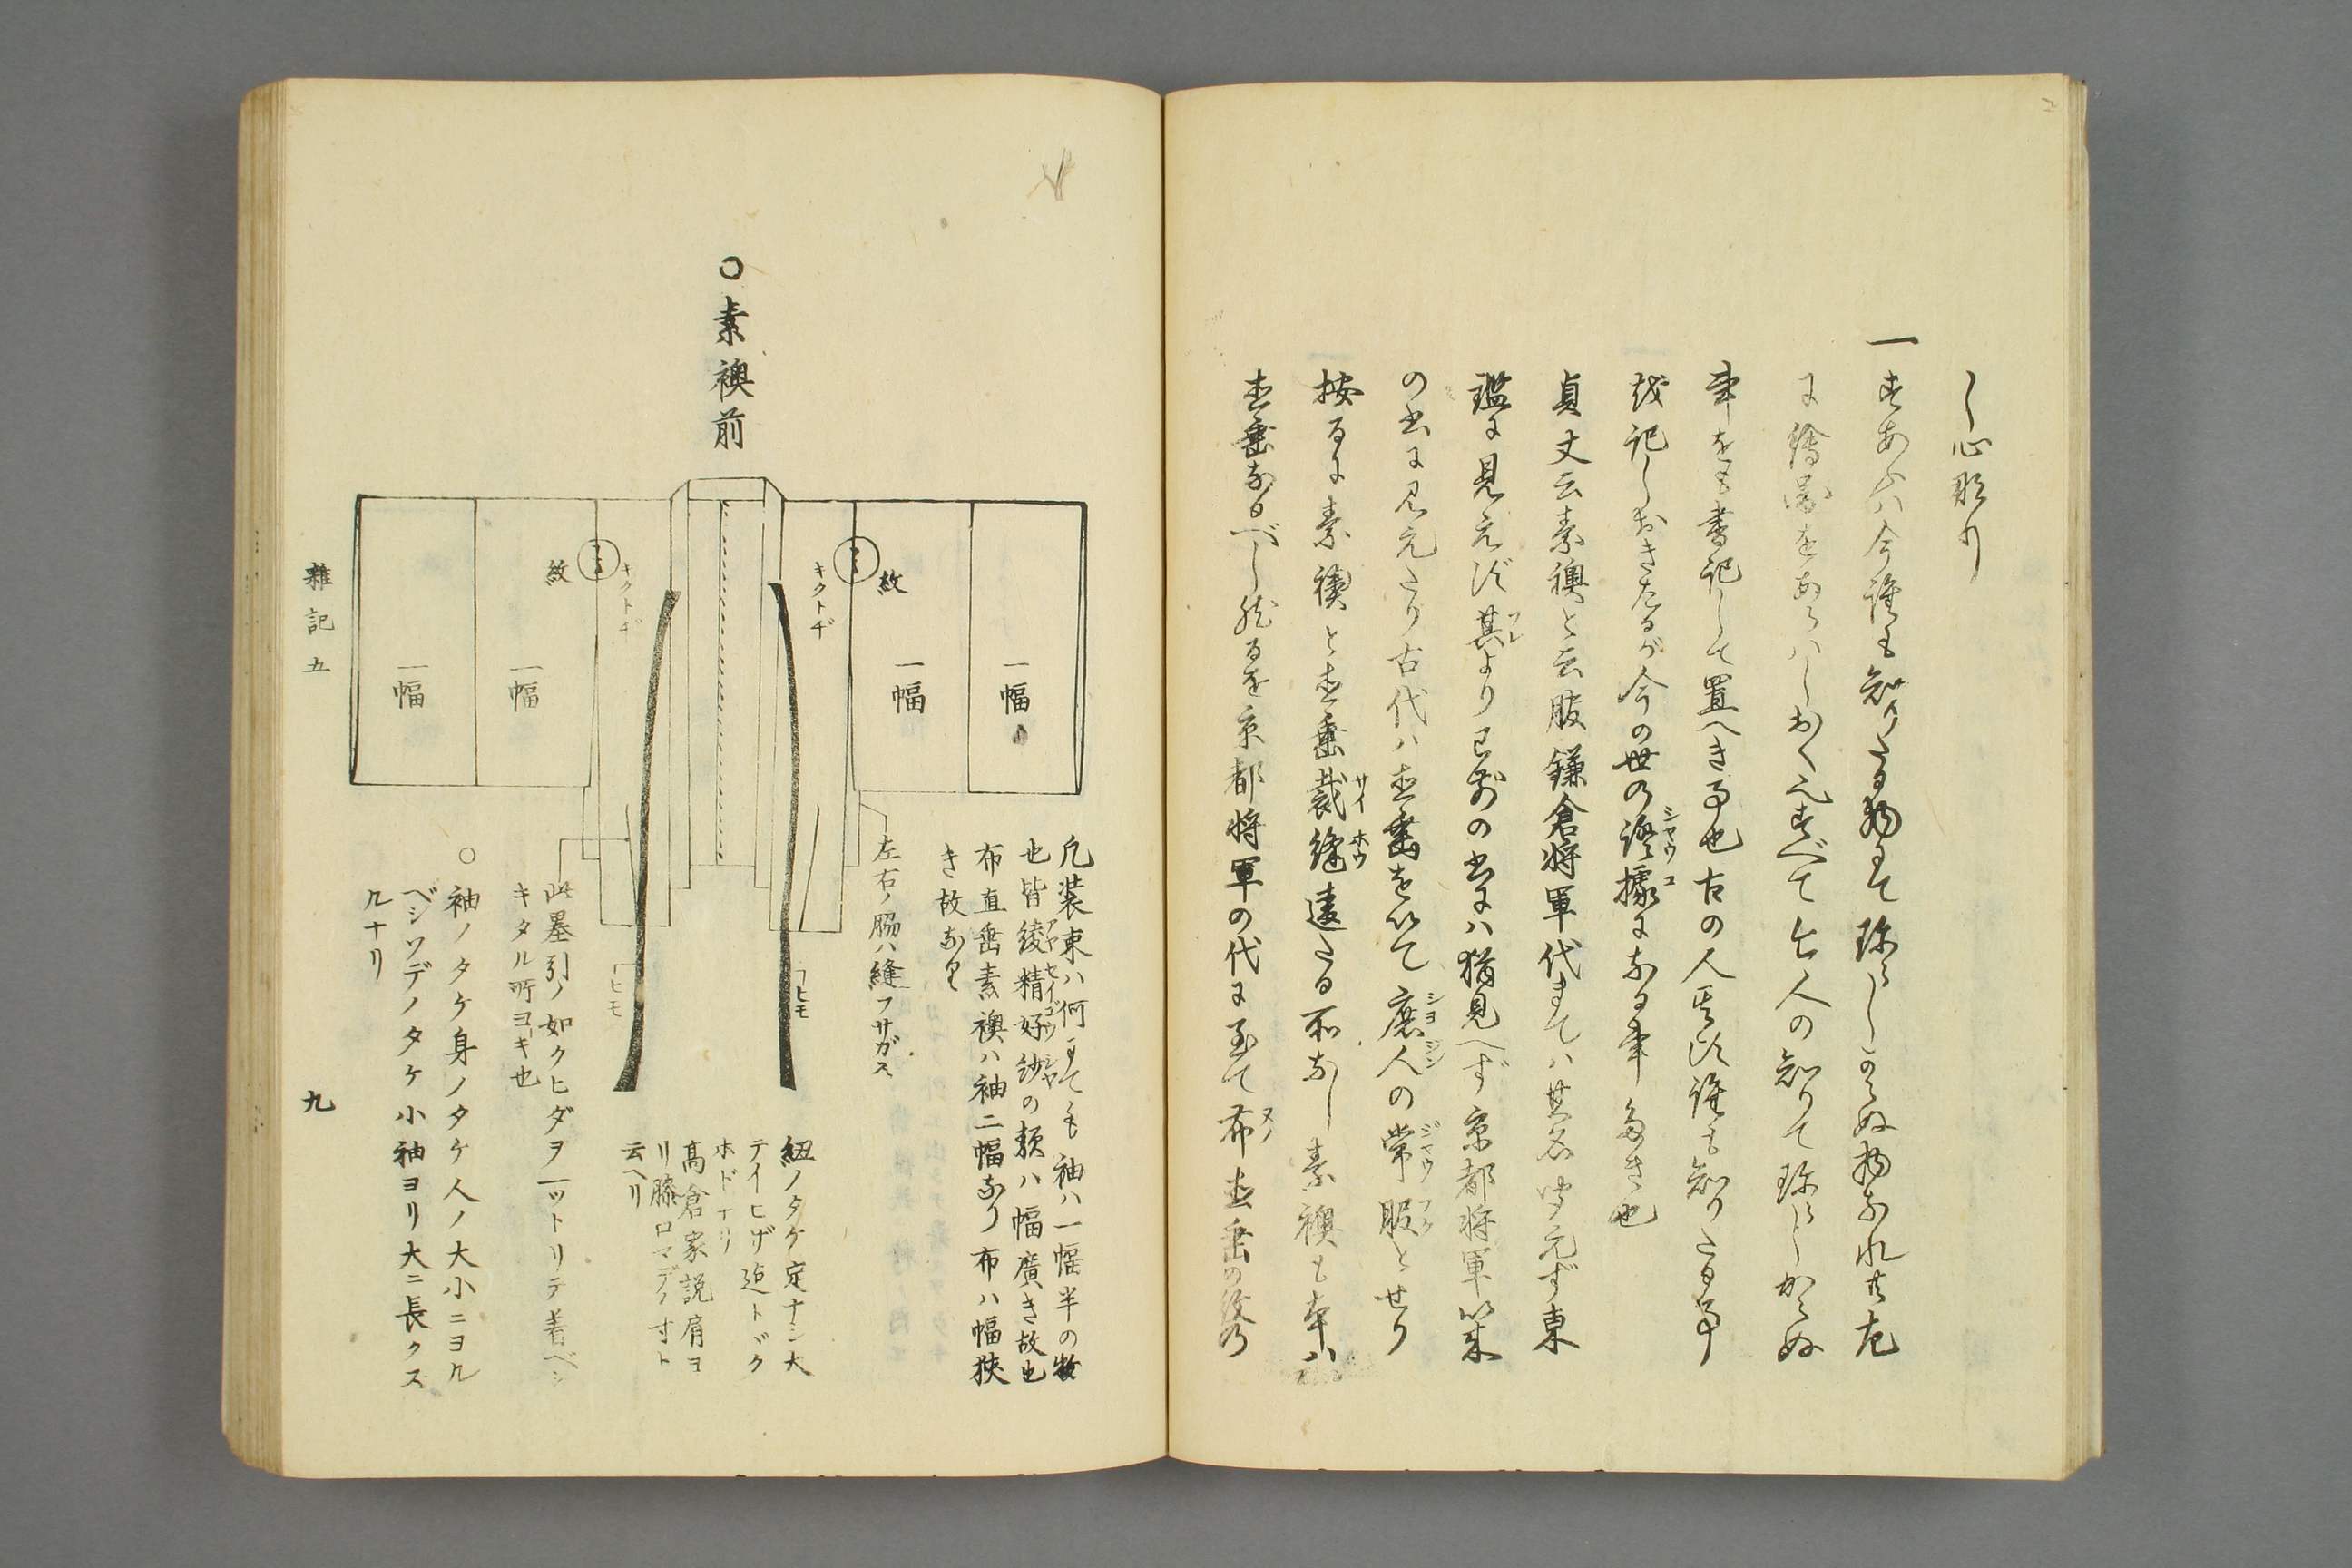 し心形り
一すあふハ今誰も知りたる物にて珍らしからぬ物なれ共左
に繪圖をあらハしおく也すべて今人の知りて珍らしからぬ
事をも書記して置へき事也古の人其頃誰も知りたる事
を記しおきたるが今の世の證據になる事多き也
貞丈云素襖と云服鎌倉将軍代まてハ其名聞えず東
鑑に見えず其より已前の書にハ猶見へず京都将軍以来
の書に見えたり古代ハ直垂を以て庶人の常服とせり
按るに素襖と直垂裁縫違たる所なし素襖も本ハ
直垂なるべし然るを京都将軍の代に至て布直垂の
○素襖前
紋
キクトヂ
キクトヂ
紋
一幅
一幅
一幅
一幅
ヒモ
ヒモ
凡装束ハ何にても袖ハ一幅半の物
也皆綾精好紗の類ハ幅廣き故也
布直垂素襖ハ袖二幅なり布ハ幅狭
き故なり
左右ノ脇ハ縫フサガス
紐ノタケ定ナシ大
テイヒザ迠トヾク
ホドナリ
髙倉家説肩ヨ
リ膝口マデノ寸ト
云ヘリ
此墨引ノ如クヒダヲ一ツトリテ着ベシ
キタル所ヨキ也
○袖ノタケ身ノタケ人ノ大小ニヨル
ベシソデノタケ小袖ヨリ大ニ長クス
ルナリ
雜記五
九